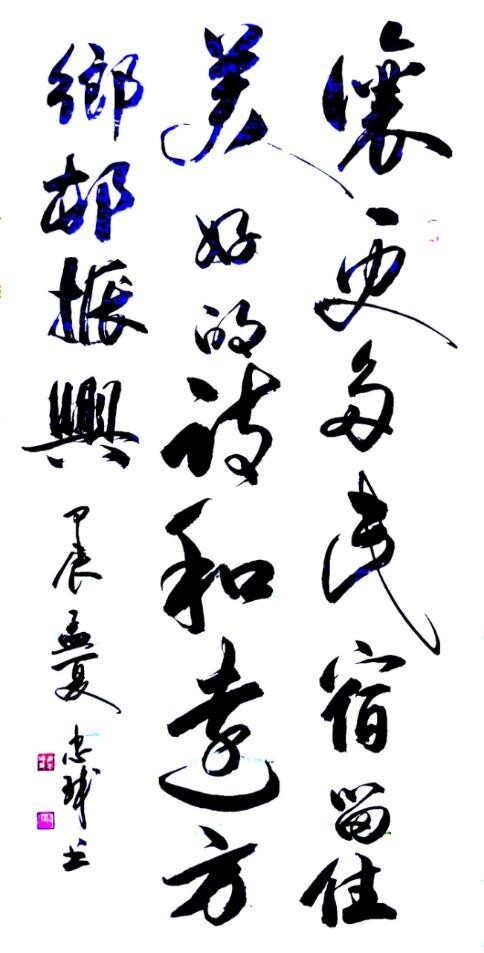 讓更多民宿留住
美好的詩和遠方
鄉邨振興 甲辰孟夏 忠球書